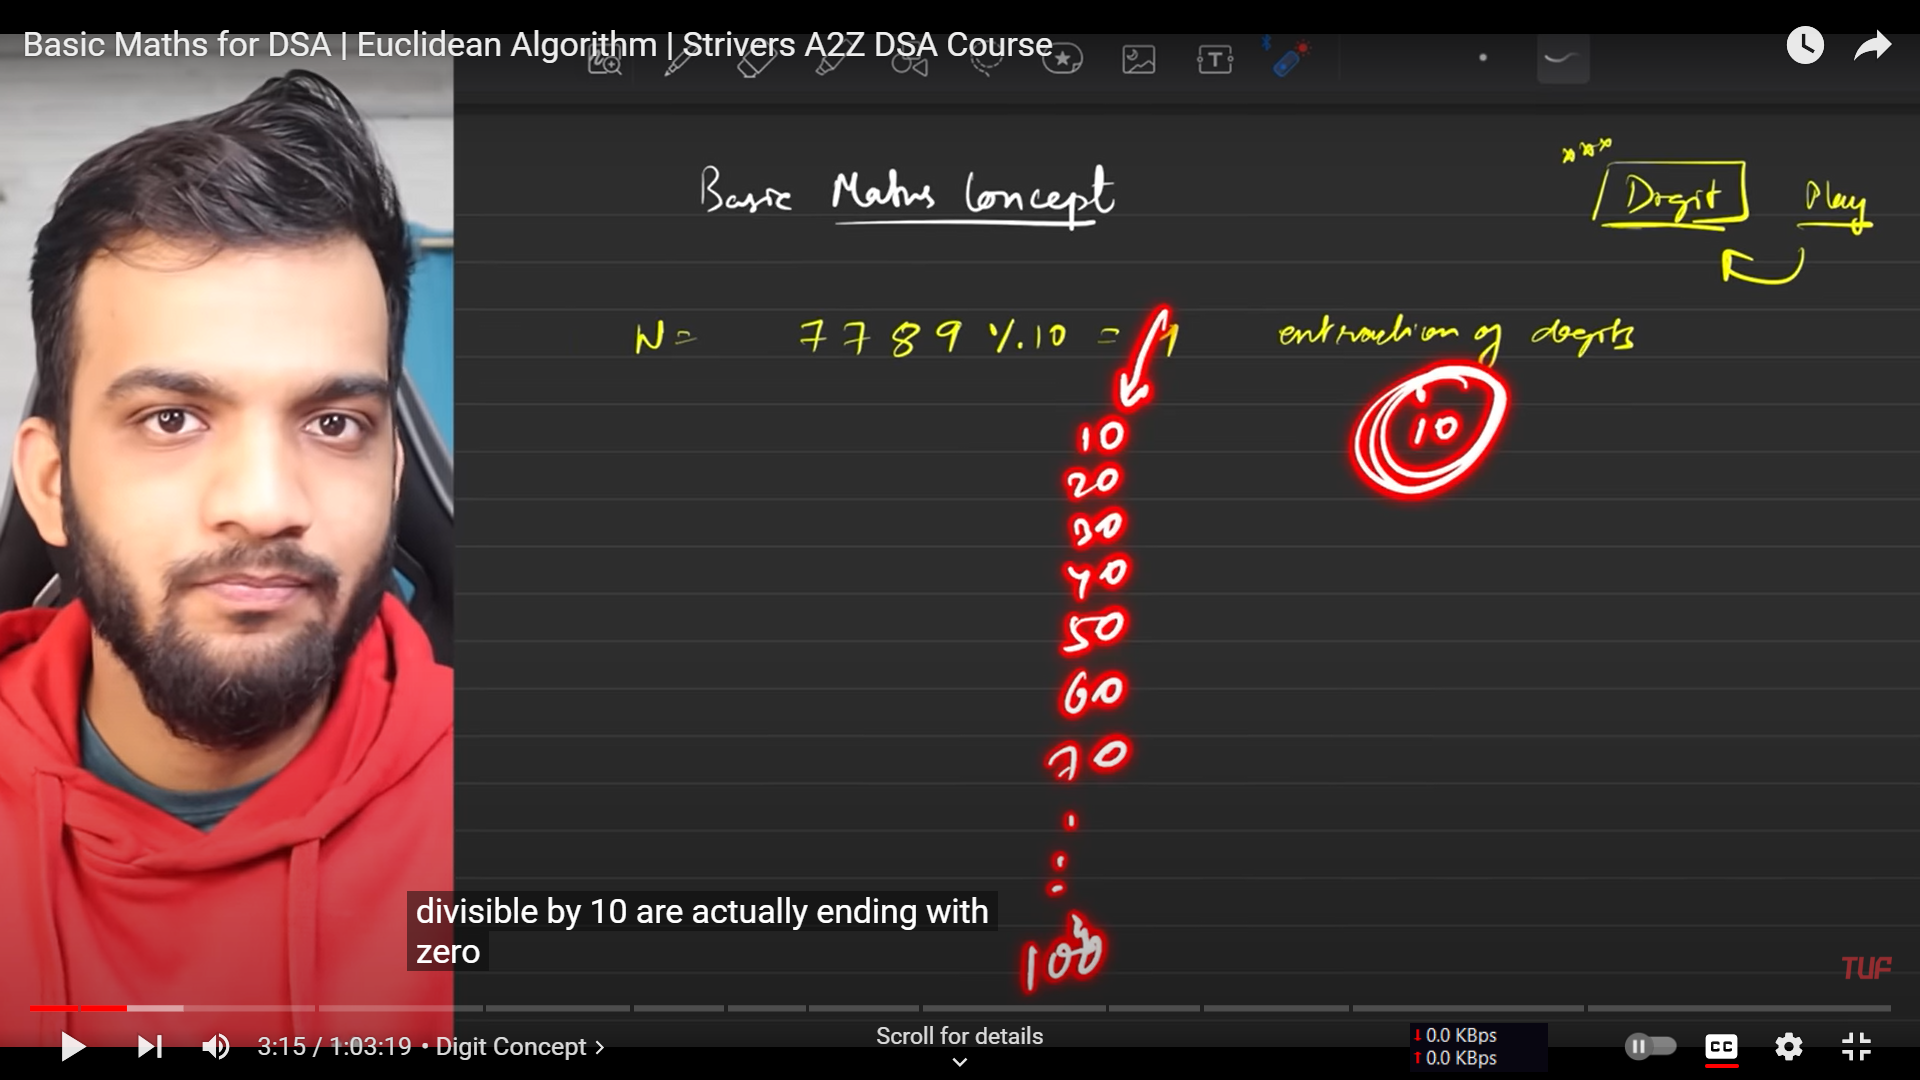 Basic Maths for DSA | Euclidean Algorithm | Strivers A2Z DSA Course
Basic Maths Concept
Digit Play
N = 7789 %10 = 9 extraction of digits
10
10
20
30
40
50
60
70
100
divisible by 10 are actually ending with
zero
TUF
3:15 / 1:03:19 • Digit Concept >
Scroll for details
0.0 KBps
0.0 KBps
CC